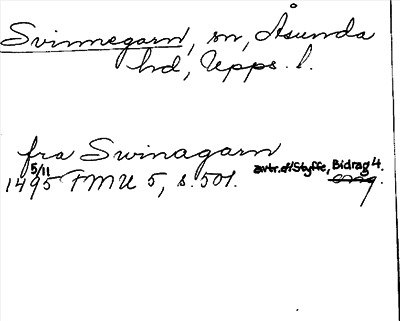 Svinnegarn, sn, Åsunda
hd, Upps. l.
fra Swinagarn
5/11 avtr. ef Styffe, Bidrag 4.
1495 FMU 5, s. 501. orig.